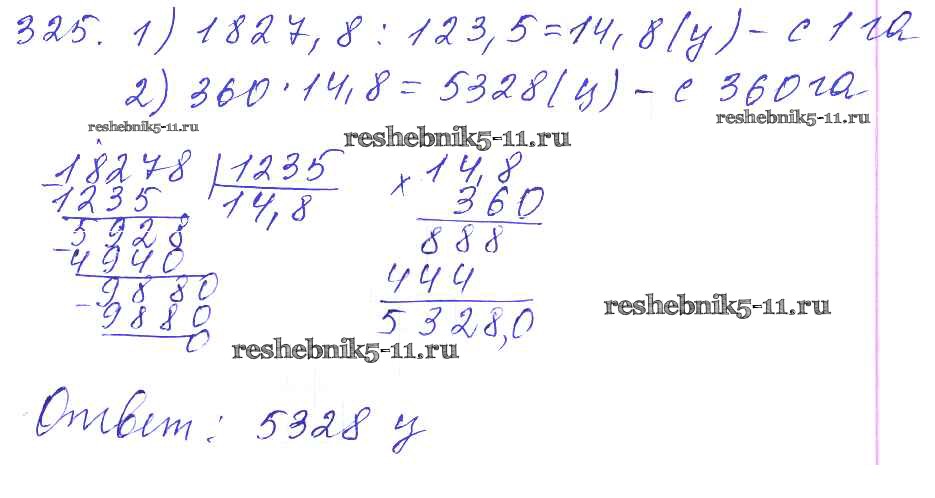 325. 1) 1827,8 : 123,5 = 14,8 (ц) - с 1 га
2) 360 · 14,8 = 5328 (ц) - с 360 га
reshebnik5-11.ru reshebnik5-11.ru reshebnik5-11.ru
18278 | 1235 14,8
- 1235 14,8 x 360
5928 888
- 4940 444
9880 5328,0
- 9880 reshebnik5-11.ru
0
reshebnik5-11.ru
Ответ: 5328 ц